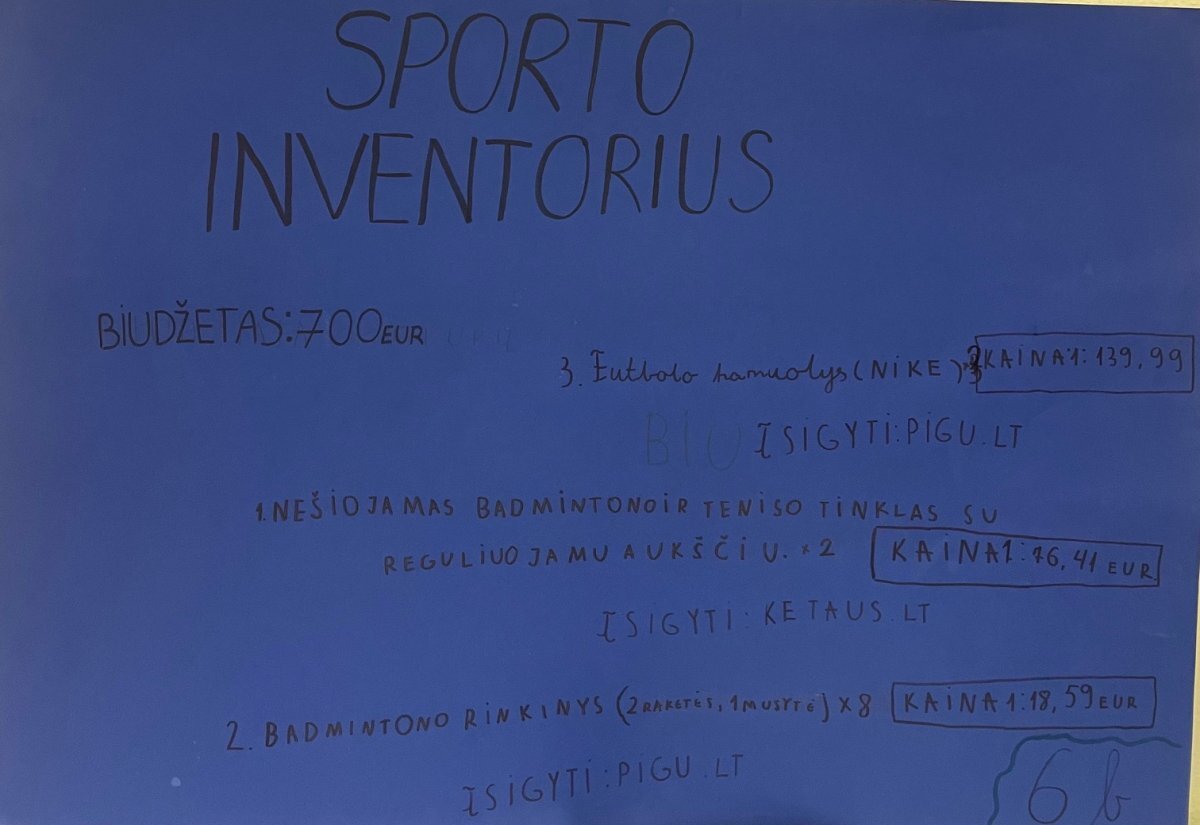 SPORTO
INVENTORIUS
BIUDŽETAS: 700 EUR
3. Futbolo kamuolys (NIKE) KAINA 1: 139,99
BIU ĮSIGYTI: PIGU.LT
1. NEŠIOJAMAS BADMINTONO IR TENISO TINKLAS SU
REGULIUOJAMU AUKŠČIU. × 2 KAINA 1: 76,41 EUR
ĮSIGYTI: KETAUS.LT
2. BADMINTONO RINKINYS (2 RAKETĖS, 1 MUSYTĖ) × 8 KAINA 1: 18,59 EUR
ĮSIGYTI: PIGU.LT
6 b